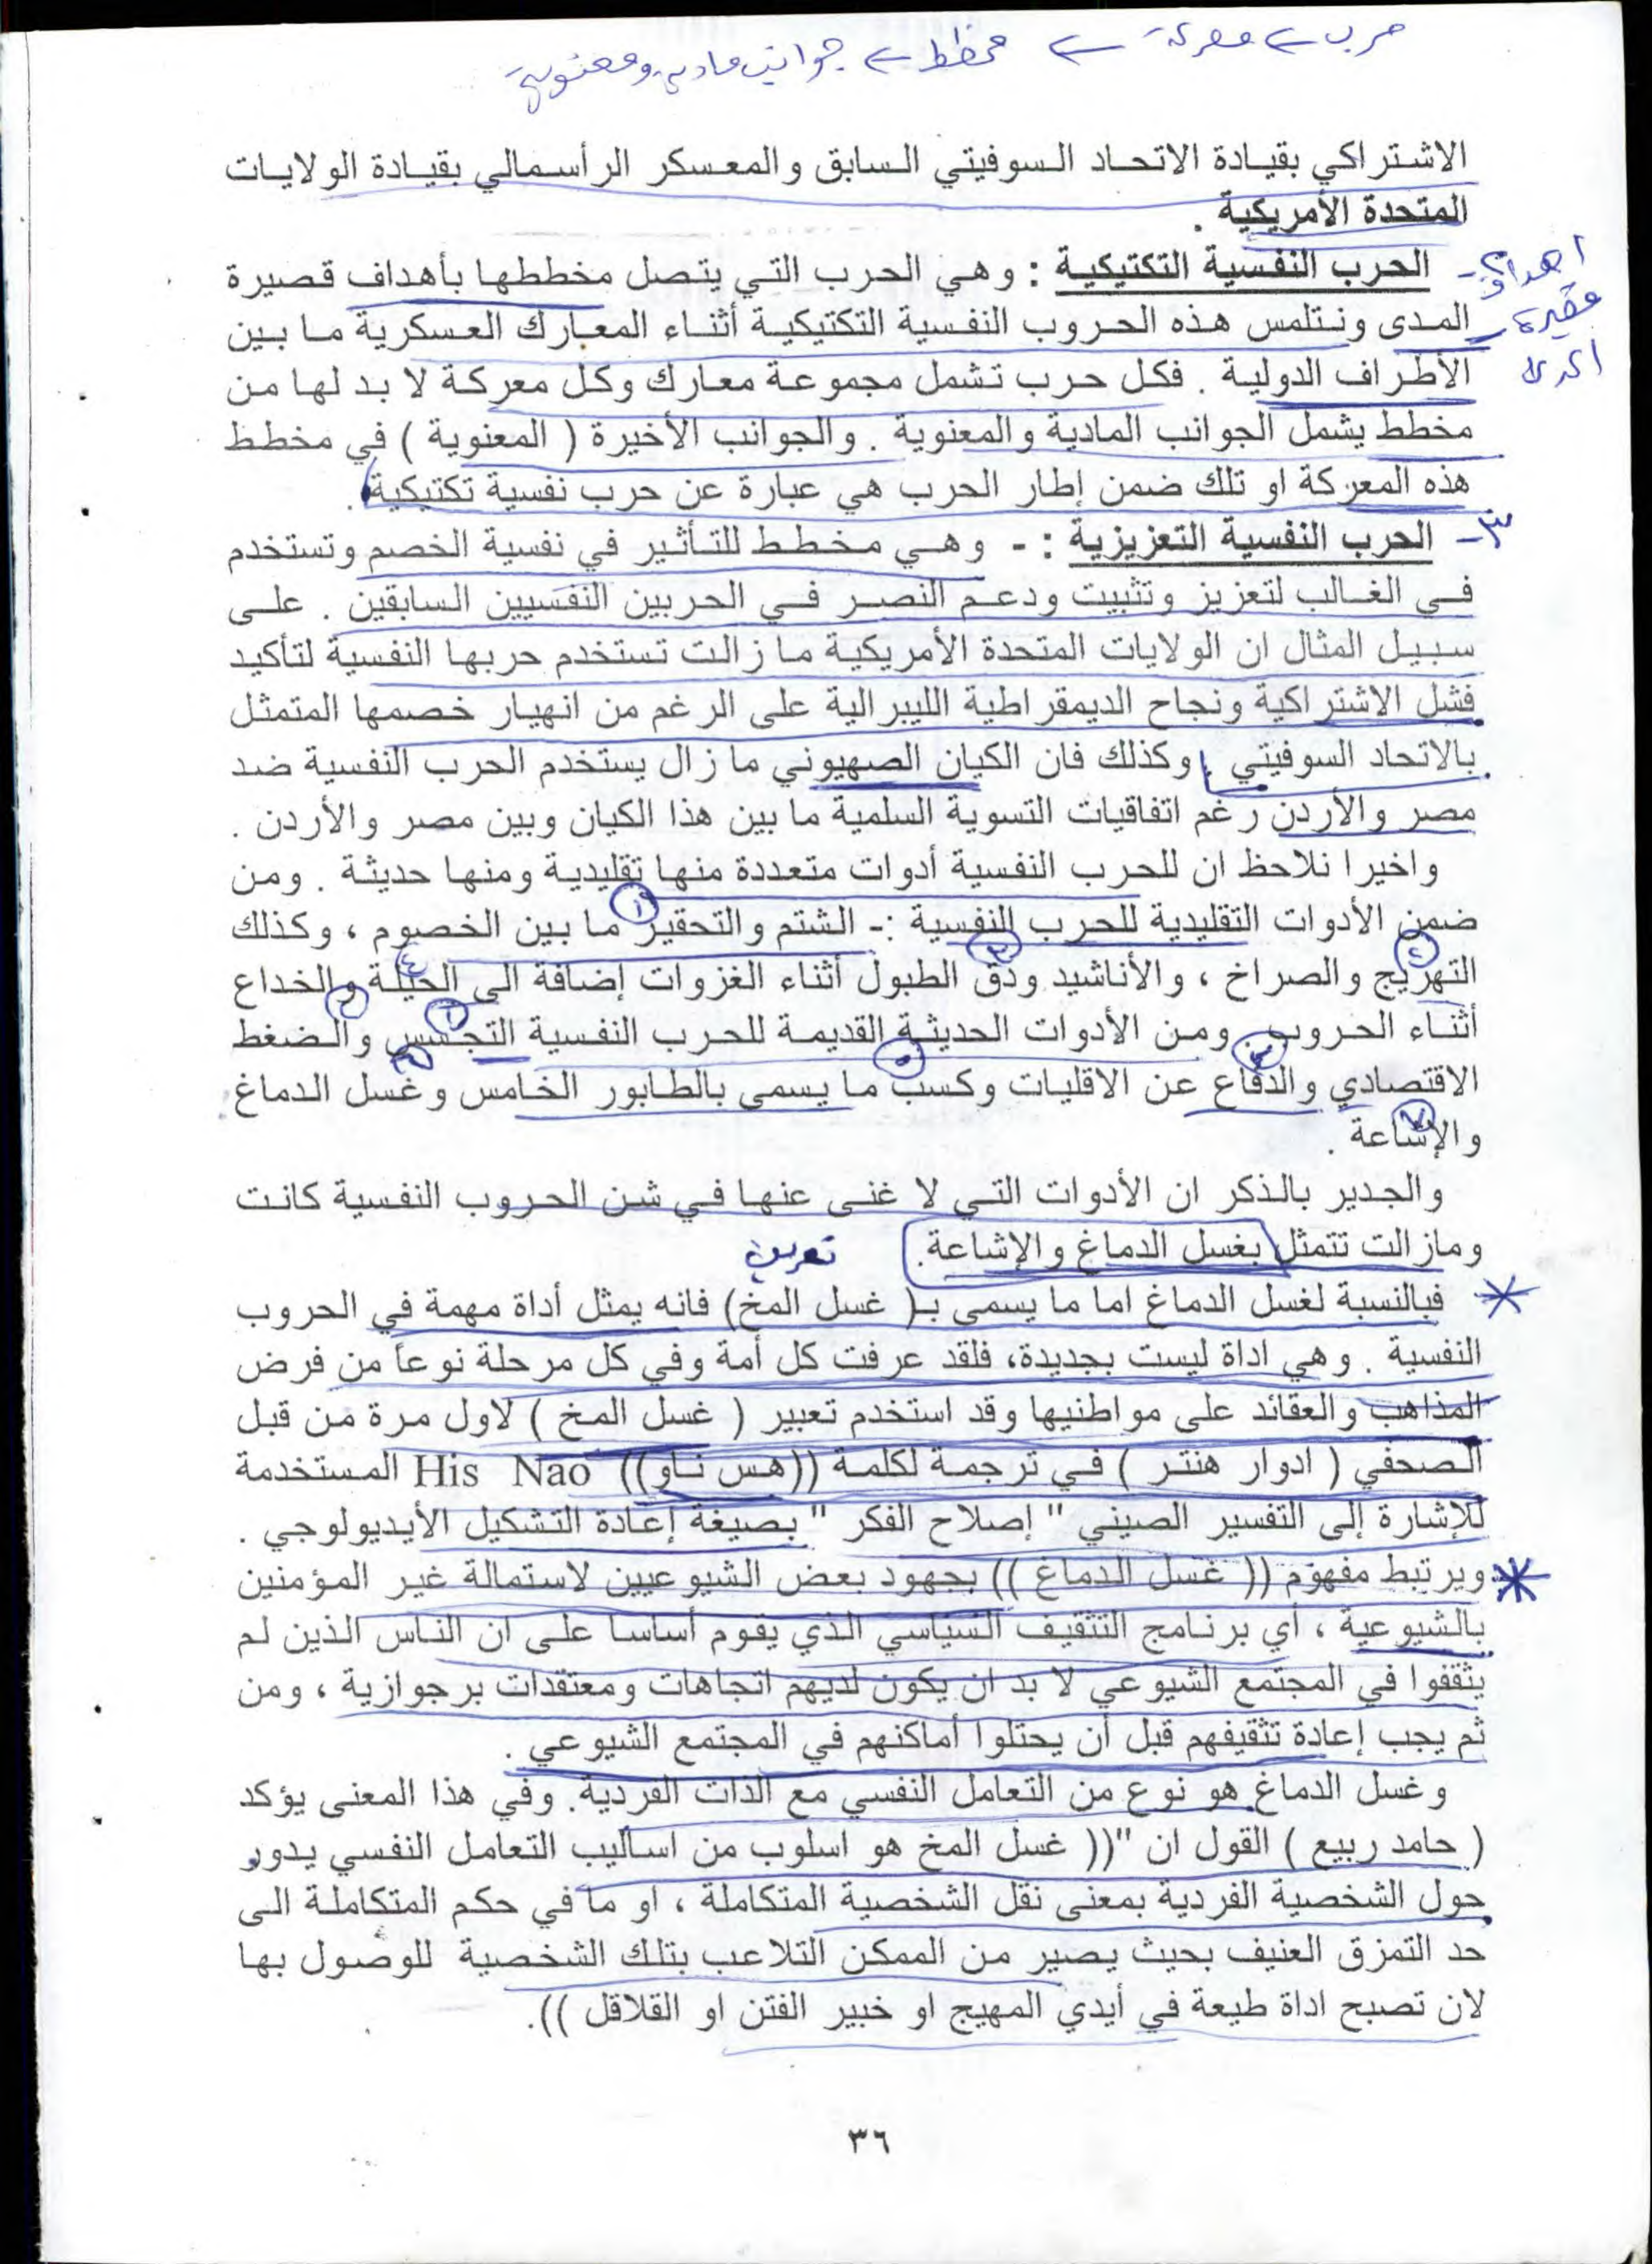 حرب ← معركة ← مخطط ← جوانب مادية ومعنوية
الاشتراكي بقيادة الاتحاد السوفيتي السابق والمعسكر الرأسمالي بقيادة الولايات
المتحدة الأمريكية .
٢- الحرب النفسية التكتيكية : وهي الحرب التي يتصل مخططها بأهداف قصيرة
اهداف
قصيرة
المدى
المدى ونتلمس هذه الحروب النفسية التكتيكية أثناء المعارك العسكرية ما بين
الأطراف الدولية . فكل حرب تشمل مجموعة معارك وكل معركة لا بد لها من
مخطط يشمل الجوانب المادية والمعنوية . والجوانب الأخيرة ( المعنوية ) في مخطط
هذه المعركة او تلك ضمن إطار الحرب هي عبارة عن حرب نفسية تكتيكية .
٣- الحرب النفسية التعزيزية : - وهي مخطط للتأثير في نفسية الخصم وتستخدم
في الغالب لتعزيز وتثبيت ودعم النصر في الحربين النفسيين السابقين . على
سبيل المثال ان الولايات المتحدة الأمريكية ما زالت تستخدم حربها النفسية لتأكيد
فشل الاشتراكية ونجاح الديمقراطية الليبرالية على الرغم من انهيار خصمها المتمثل
بالاتحاد السوفيتي . وكذلك فان الكيان الصهيوني ما زال يستخدم الحرب النفسية ضد
مصر والأردن رغم اتفاقيات التسوية السلمية ما بين هذا الكيان وبين مصر والأردن .
واخيرا نلاحظ ان للحرب النفسية أدوات متعددة منها تقليدية ومنها حديثة . ومن
ضمن الأدوات التقليدية للحرب النفسية :- الشتم والتحقير ما بين الخصوم ، وكذلك
التهريج والصراخ ، والأناشيد ودق الطبول أثناء الغزوات إضافة الى الحيلة والخداع
أثناء الحروب . ومن الأدوات الحديثة القديمة للحرب النفسية التجسس والضغط
الاقتصادي والدفاع عن الاقليات وكسب ما يسمى بالطابور الخامس وغسل الدماغ
والإشاعة .
والجدير بالذكر ان الأدوات التي لا غنى عنها في شن الحروب النفسية كانت
ومازالت تتمثل بغسل الدماغ والإشاعة. تعريف
فبالنسبة لغسل الدماغ اما ما يسمى بـ( غسل المخ) فانه يمثل أداة مهمة في الحروب
النفسية . وهي اداة ليست بجديدة، فلقد عرفت كل أمة وفي كل مرحلة نوعاً من فرض
المذاهب والعقائد على مواطنيها وقد استخدم تعبير ( غسل المخ ) لاول مرة من قبل
الصحفي ( ادوار هنتر ) في ترجمة لكلمة ((هس ناو)) His Nao المستخدمة
للإشارة إلى التفسير الصيني " إصلاح الفكر " بصيغة إعادة التشكيل الأيديولوجي .
ويرتبط مفهوم (( غسل الدماغ )) بجهود بعض الشيوعيين لاستمالة غير المؤمنين
بالشيوعية ، أي برنامج التثقيف السياسي الذي يقوم أساسا على ان الناس الذين لم
يثقفوا في المجتمع الشيوعي لا بد ان يكون لديهم اتجاهات ومعتقدات برجوازية ، ومن
ثم يجب إعادة تثقيفهم قبل أن يحتلوا أماكنهم في المجتمع الشيوعي .
وغسل الدماغ هو نوع من التعامل النفسي مع الذات الفردية. وفي هذا المعنى يؤكد
( حامد ربيع ) القول ان "(( غسل المخ هو اسلوب من اساليب التعامل النفسي يدور
حول الشخصية الفردية بمعنى نقل الشخصية المتكاملة ، او ما في حكم المتكاملة الى
حد التمزق العنيف بحيث يصير من الممكن التلاعب بتلك الشخصية للوصول بها
لان تصبح اداة طيعة في أيدي المهيج او خبير الفتن او القلاقل )).
٣٦